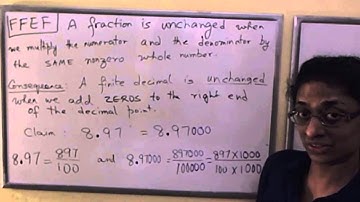 FFEF A fraction is unchanged when
we multiply the numerator and the denominator by
the SAME nonzero whole number.
Consequence: A finite decimal is unchanged
when we add ZEROS to the right end
of the decimal point.
Claim: 8.97 = 8.97000
8.97 = 897/100 and 8.97000 = 897000/100000 = 897 × 1000/100 × 1000